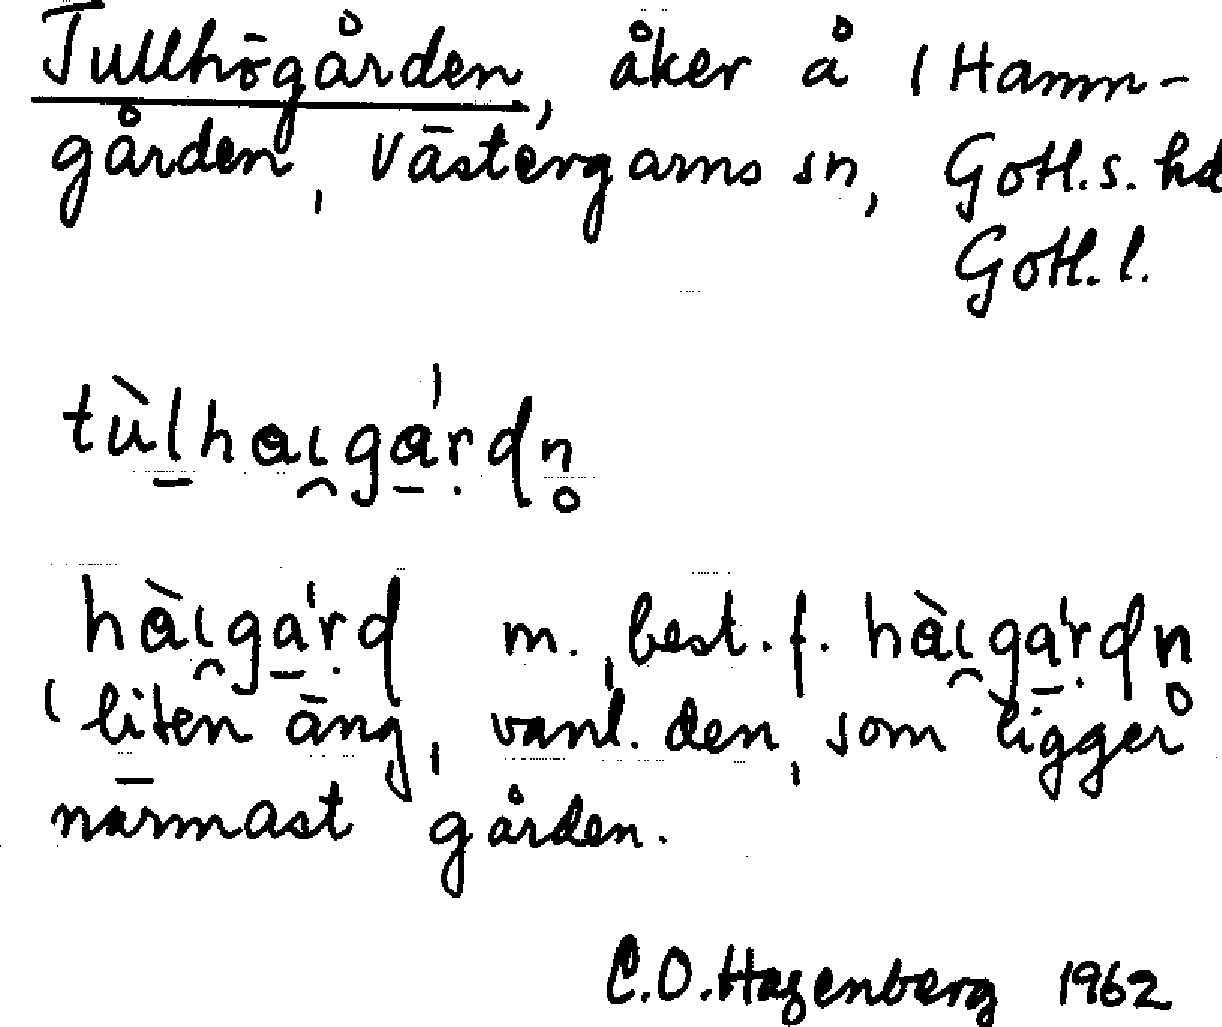 Tullhögården, åker å 1 Hamn-
gården, Västergarns sn, Gotl. s. hd
Gotl. l.
tùlhaıga̍rdn̥
hàıga̍rd m., best. f. hàıga̍rdn̥
'liten äng, vanl. den, som ligger
närmast gården.
C.O. Hagenberg 1962